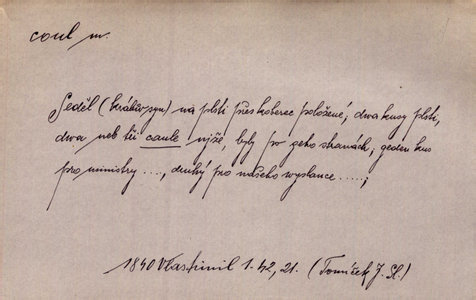 coul m.
Seděl (králův syn) na plsti přes koberec položené; dwa kusy plsti,
dwa neb tři caule njže, byly po geho stranách, geden kus
pro ministry ...., druhý pro našeho wyslance .....;
1840 Vlastimil 1. 42, 21. (Tomíček J. Sl.)